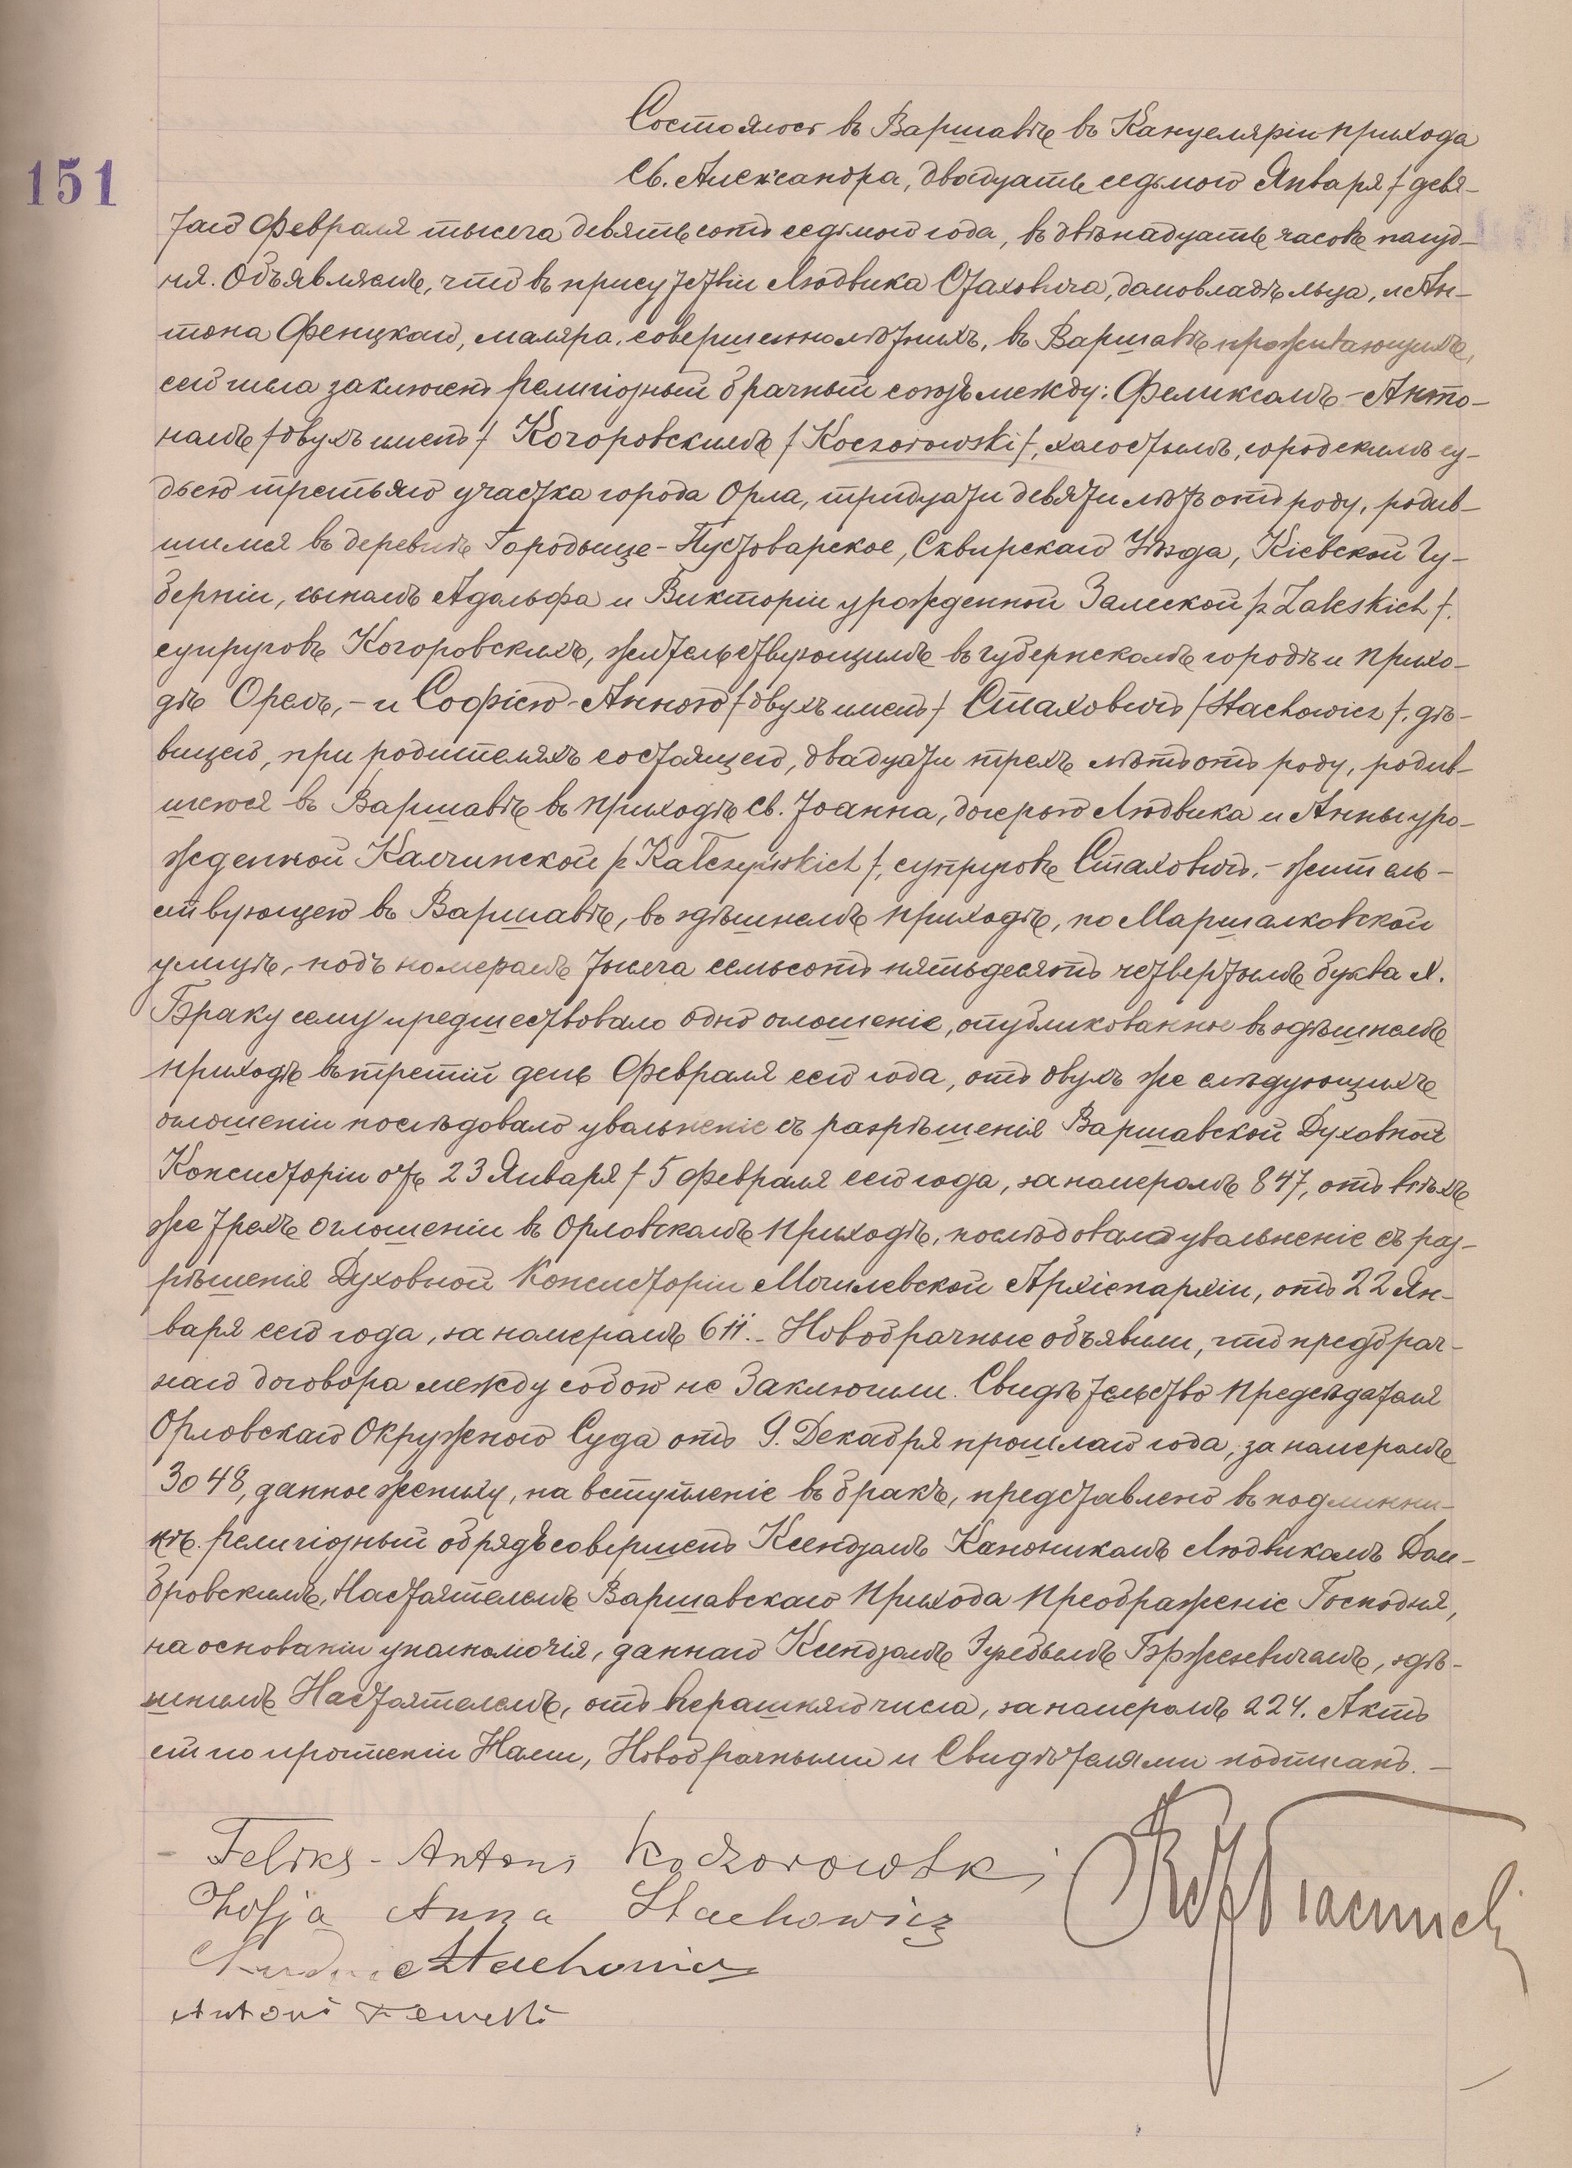 151
Состоялось въ Варшавѣ въ Канцеляріи прихода
Св. Александра, двадцать седьмого Января / девя-
таго Февраля тысяча девятьсотъ седьмого года, въ двѣнадцать часовъ полуд-
ня. Объявляемъ, что въ присутствіи Людвика Стаховича, домовладѣльца, и Ан-
тона Феницкаго, маляра, совершеннолѣтнихъ, въ Варшавѣ проживающихъ,
сего числа заключенъ религіозный брачный союзъ между: Феликсомъ-Анто-
номъ / двухъ именъ / Кочоровскимъ / Koczorowski /, холостымъ, городскимъ су-
дьею третьяго участка города Орла, тридцати девяти лѣтъ отъ роду, родив-
шимся въ деревнѣ Городище-Пустоварское, Сквирскаго Уѣзда, Кіевской Гу-
берніи, сыномъ Адольфа и Викторіи урожденной Залеской / z Zaleskich /.
супруговъ Кочоровскихъ, жительствующимъ въ губернскомъ городѣ и прихо-
дѣ Орелъ, - и Софіею-Анною / двухъ именъ / Стаховичъ / Stachowicz /, дѣ-
вицею, при родителяхъ состоящею, двадцати трехъ лѣтъ отъ роду, родив-
шеюся въ Варшавѣ въ приходѣ Св. Іоанна, дочерью Людвика и Анны уро-
жденной Калчинской / z Kałczyńskich /, супруговъ Стаховичъ, - житель-
ствующею въ Варшавѣ, въ здѣшнемъ приходѣ, по Маршалковской
улицѣ, подъ номеромъ тысяча семьсотъ пятьдесятъ четвертымъ буква Л.
Браку сему предшествовало одно оглошеніе, опубликованное въ здѣшнемъ
приходѣ въ третій день Февраля сего года, отъ двухъ же слѣдующихъ
оглошеніи послѣдовало увольненіе съ разрѣшенія Варшавской Духовной
Консисторіи отъ 23 Января / 5 Февраля сего года, за номеромъ 847, отъ всѣхъ
же трехъ оглошеніи въ Орловскомъ приходѣ, послѣдовало увольненіе съ раз-
рѣшенія Духовной Консисторіи Могилевской Архіепархіи, отъ 22 Ян-
варя сего года, за номеромъ 611. - Новобрачные объявили, что предбрач-
наго договора между собою не заключили. Свидѣтельство Предсѣдателя
Орловскаго Окружного Суда отъ 9. Декабря прошлаго года, за номеромъ
3048, данное жениху, на вступленіе въ бракъ, представлено въ подлинни-
кѣ. Религіозный обрядъ совершенъ Ксендзомъ Каноникомъ Людвикомъ Дом-
бровскимъ, Настоятелемъ Варшавскаго Прихода Преображеніе Господня,
на основаніи уполномочія, даннаго Ксендзомъ Бржезевичомъ, здѣ-
шнимъ Настоятелемъ, отъ вчерашняго числа, за номеромъ 224. Актъ
сей по прочтеніи Нами, Новобрачными и Свидѣтелями подписанъ. -
Feliks - Antoni Koczorowski
Zofja Anna Stachowicz
Ludwik Stachowicz
Antoni